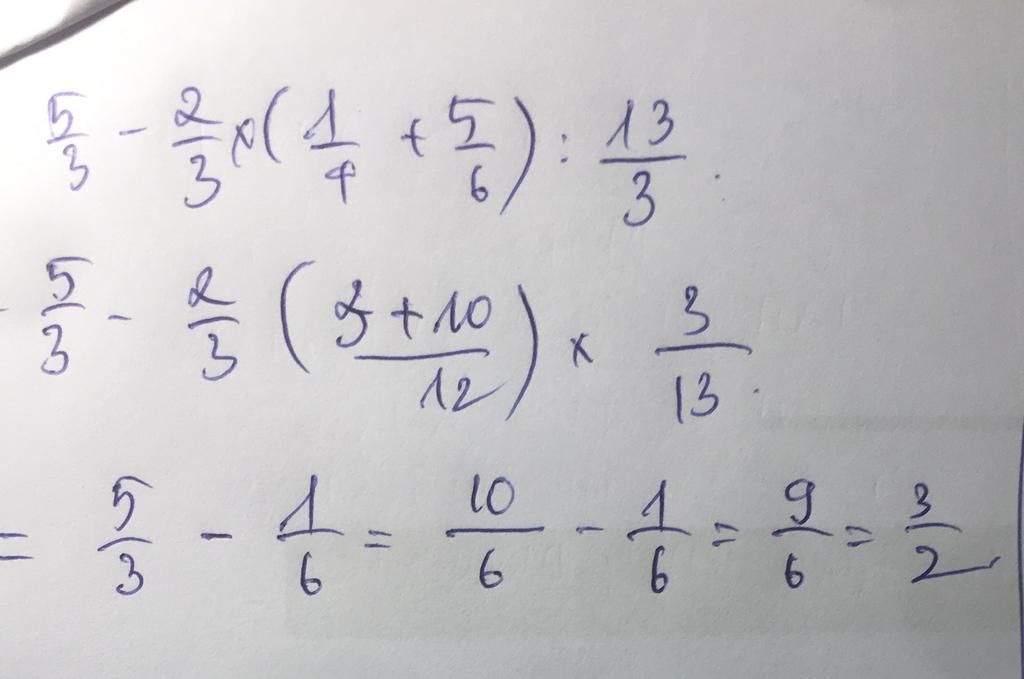 5/3 - 2/3 × ( 1/4 + 5/6 ) : 13/3 .
- 5/3 - 2/3 ( 3 + 10 / 12 ) × 3/13 .
= 5/3 - 1/6 = 10/6 - 1/6 = 9/6 = 3/2